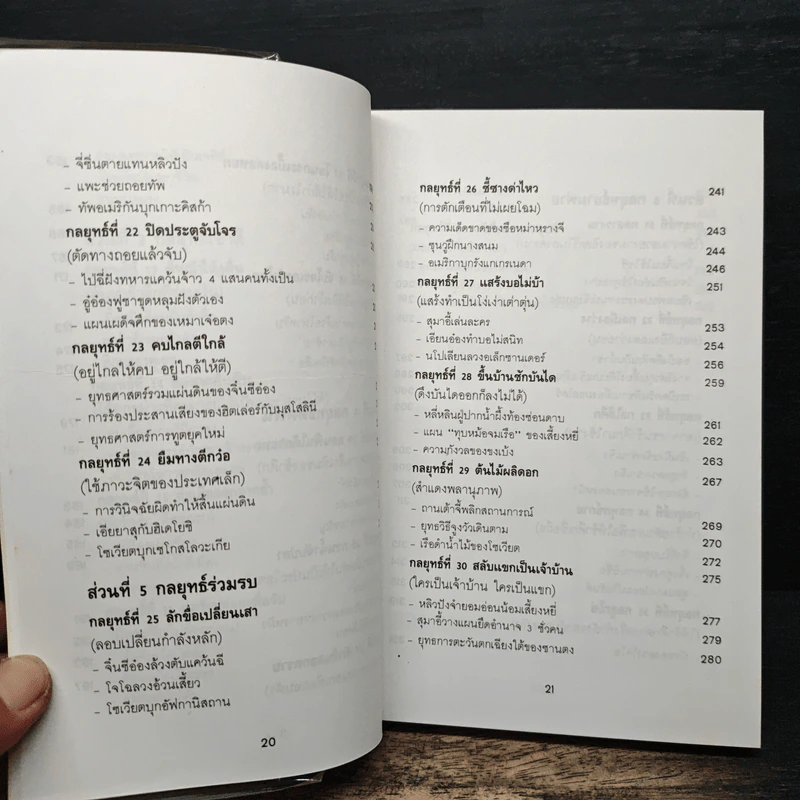 - จี้ซิ่นตายแทนหลิวปัง
- แพะช่วยถอยทัพ
- ทัพอเมริกันบุกเกาะคิสก้า
กลยุทธ์ที่ 22 ปิดประตูจับโจร
(ตัดทางถอยแล้วจับ)
- ไป๋ฉี่ฝังทหารแคว้นจ้าว 4 แสนคนทั้งเป็น
- อู๋อ๋องฟูซาขุดหลุมฝังตัวเอง
- แผนเผด็จศึกของเหมาเจ๋อตง
กลยุทธ์ที่ 23 คบไกลตีใกล้
(อยู่ไกลให้คบ อยู่ใกล้ให้ตี)
- ยุทธศาสตร์รวมแผ่นดินของจิ๋นซีอ๋อง
- การร้องประสานเสียงของฮิตเล่อร์กับมุสโสลินี
- ยุทธศาสตร์การทูตยุคใหม่
กลยุทธ์ที่ 24 ยืมทางตีกว๋อ
(ใช้ภาวะจิตของประเทศเล็ก)
- การวินิจฉัยผิดทำให้สิ้นแผ่นดิน
- เอียยาสุกับฮิเดโยชิ
- โซเวียตบุกเชโกสโลวะเกีย
ส่วนที่ 5 กลยุทธ์ร่วมรบ
กลยุทธ์ที่ 25 ลักขื่อเปลี่ยนเสา
(ลอบเปลี่ยนกำลังหลัก)
- จิ๋นซีอ๋องล้วงตับแคว้นฉี
- โจโฉลวงอ้วนเสี้ยว
- โซเวียตบุกอัฟกานิสถาน
20
กลยุทธ์ที่ 26 ชี้ซางด่าไหว 241
(การตักเตือนที่ไม่เผยโฉม)
- ความเด็ดขาดของซือหม่าหรางจี 243
- ซุนวู่ฝึกนางสนม 244
- อเมริกาบุกรังแกเกรเนดา 246
กลยุทธ์ที่ 27 แสร้งบอไม่บ้า 251
(แสร้งทำเป็นโง่เง่าเต่าตุ่น)
- สุมาอี้เล่นละคร 253
- เอียนอ๋องทำบอไม่สนิท 254
- นโปเลียนลวงอเล็กซานเดอร์ 256
กลยุทธ์ที่ 28 ขึ้นบ้านชักบันได 259
(ดึงบันไดออกก็ลงไม่ได้)
- หลี่หลินฝู่ปากน้ำผึ้งท้องซ่อนดาบ 261
- แผน "ทุบหม้อจมเรือ" ของเสี้ยงหยี่ 262
- ความกังวลของขงเบ้ง 263
กลยุทธ์ที่ 29 ต้นไม้ผลิดอก 267
(สำแดงพลานุภาพ)
- ถานเต้าจี้พลิกสถานการณ์ 269
- ยุทธวิธีจูงวัวเดินตาม 270
- เรือดำน้ำไม้ของโซเวียต 272
กลยุทธ์ที่ 30 สลับแขกเป็นเจ้าบ้าน 275
(ใครเป็นเจ้าบ้าน ใครเป็นแขก)
- หลิวปังจำยอมอ่อนน้อมเสี้ยงหยี่ 277
- สุมาอี้วางแผนยึดอำนาจ 3 ชั่วคน 279
- ยุทธการตะวันตกเฉียงใต้ของซานตง 280
21